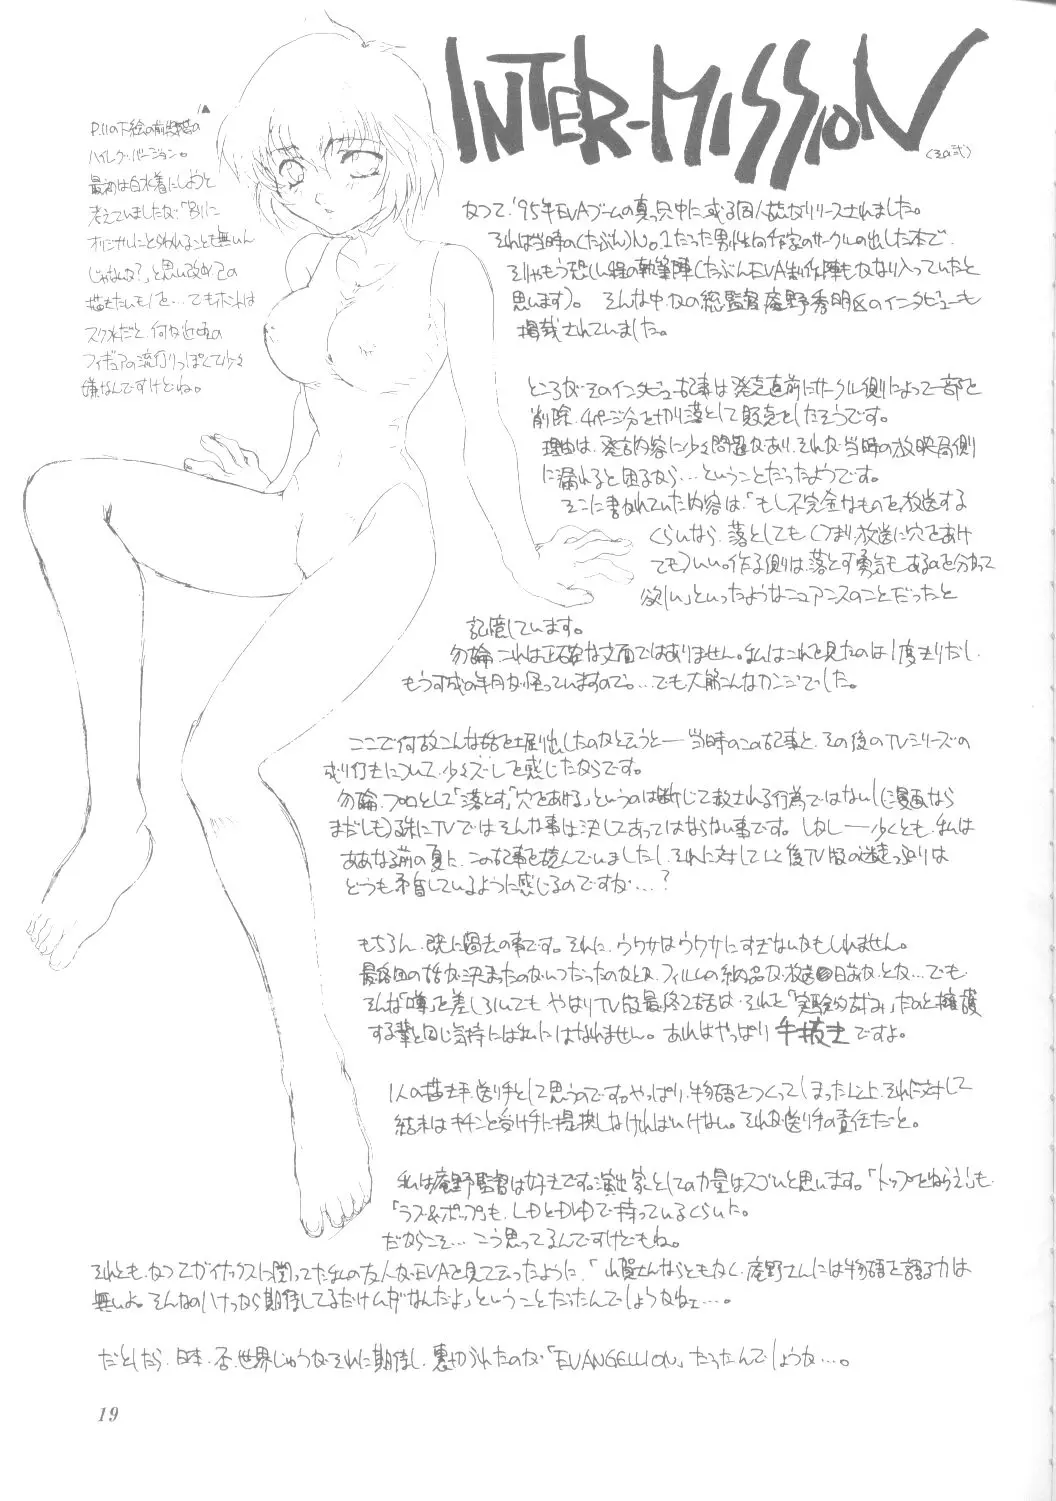 INTER-MISSION
(その弐)
P.11の下絵の前段階の
ハイレグ・バージョン。
最初は白水着にしようと
考えていましたが「別に
オリジナルにとらわれることも無いん
じゃねぇか?」と思い改めこの
描きたいモノを…でもホントは
スク水だと、何か近頃の
フィギュアの流行りっぽくて少々
嫌なんですけどね。
かつて、'95年EVAブームの真っ只中に或る同人誌がリリースされました。
それは当時の(たぶん)No.1だった男性向作家のサークルの出した本で、
そりゃもう恐しい程の執筆陣(たぶんEVA制作陣もかなり入っていたと
思います)。そんな中かの総監督庵野秀明氏のインタビューも
掲載されていました。
ところが、そのインタビュー記事は発売直前にサークル側によって一部を
削除、4ページ分を切り落として販売をしたそうです。
理由は、発言内容に少々問題があり、それが当時の放映局側
に漏れると困るから…ということだったようです。
そこに書かれていた内容は、「もし不完全なものを放送する
くらいなら、落としても(つまり、放送に穴をあけ
ても)いい。作る側は、落とす勇気もあるのを分かって
欲しい」といったようなニュアンスのことだったと
記憶しています。
勿論、これは正確な文面ではありません。私はこれを見たのは1度きりだし、
もう可成の年月が経っていますので。…でも大筋こんなカンジでした。
ここで何故こんな話を掘り出したのかと言うと――当時のこの記事と、その後のTVシリーズの
成り行きについて、少々ズレを感じたからです。
勿論、プロとして「落とす」「穴をあける」というのは断じて赦される行為ではないし(漫画なら
まだしも)殊にTVではそんな事は決してあってはならない事です。しかし――少くとも、私は
ああなる前の夏に、この記事を読んでいましたし、それに対して以後TV版の迷走っぷりは
どうも矛盾しているように感じるのですが…?
もちろん、既に過去の事です。それに、ウワサはウワサにすぎないかもしれません。
最終回の話が決まったのがいつだったのかとか、フィルムの納品が放送日前だとか…でも、
そんな「噂」を差し引いても、やはりTV版最終2話は、それを「実験的なんだ」だのと擁護
する輩と同じ気持には私にはなれません。あれはやっぱり手抜きですよ。
1人の描き手、送り手として思うのです。やっぱり、物語をつくってしまった以上、それに対して
結末はキチンと受け手に提供しなければいけない。それが送り手の責任だと。
私は庵野監督は好きです。演出家としての力量はスゴいと思います。「トップをねらえ!」も、
「ラブ&ポップ」も、LDとDVDで持っているくらいだ。
だからこそ…こう思ってるんですけどもね。
それとも、かつてガイナックスに関ってた私の友人がEVAを見て言ったように、「山賀さんならともかく、庵野さんには物語を語る力は
無いよ。そんなのハナっから期待してるだけムダなんだよ」ということだったんでしょうかねェ…。
だとしたら、日本、否、世界じゅうがそれに期待し、裏切られたのが「EVANGELLION」だったんでしょうか…。
19